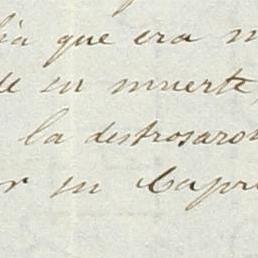 que era
de su muerte,
la destrosaron
su Capri